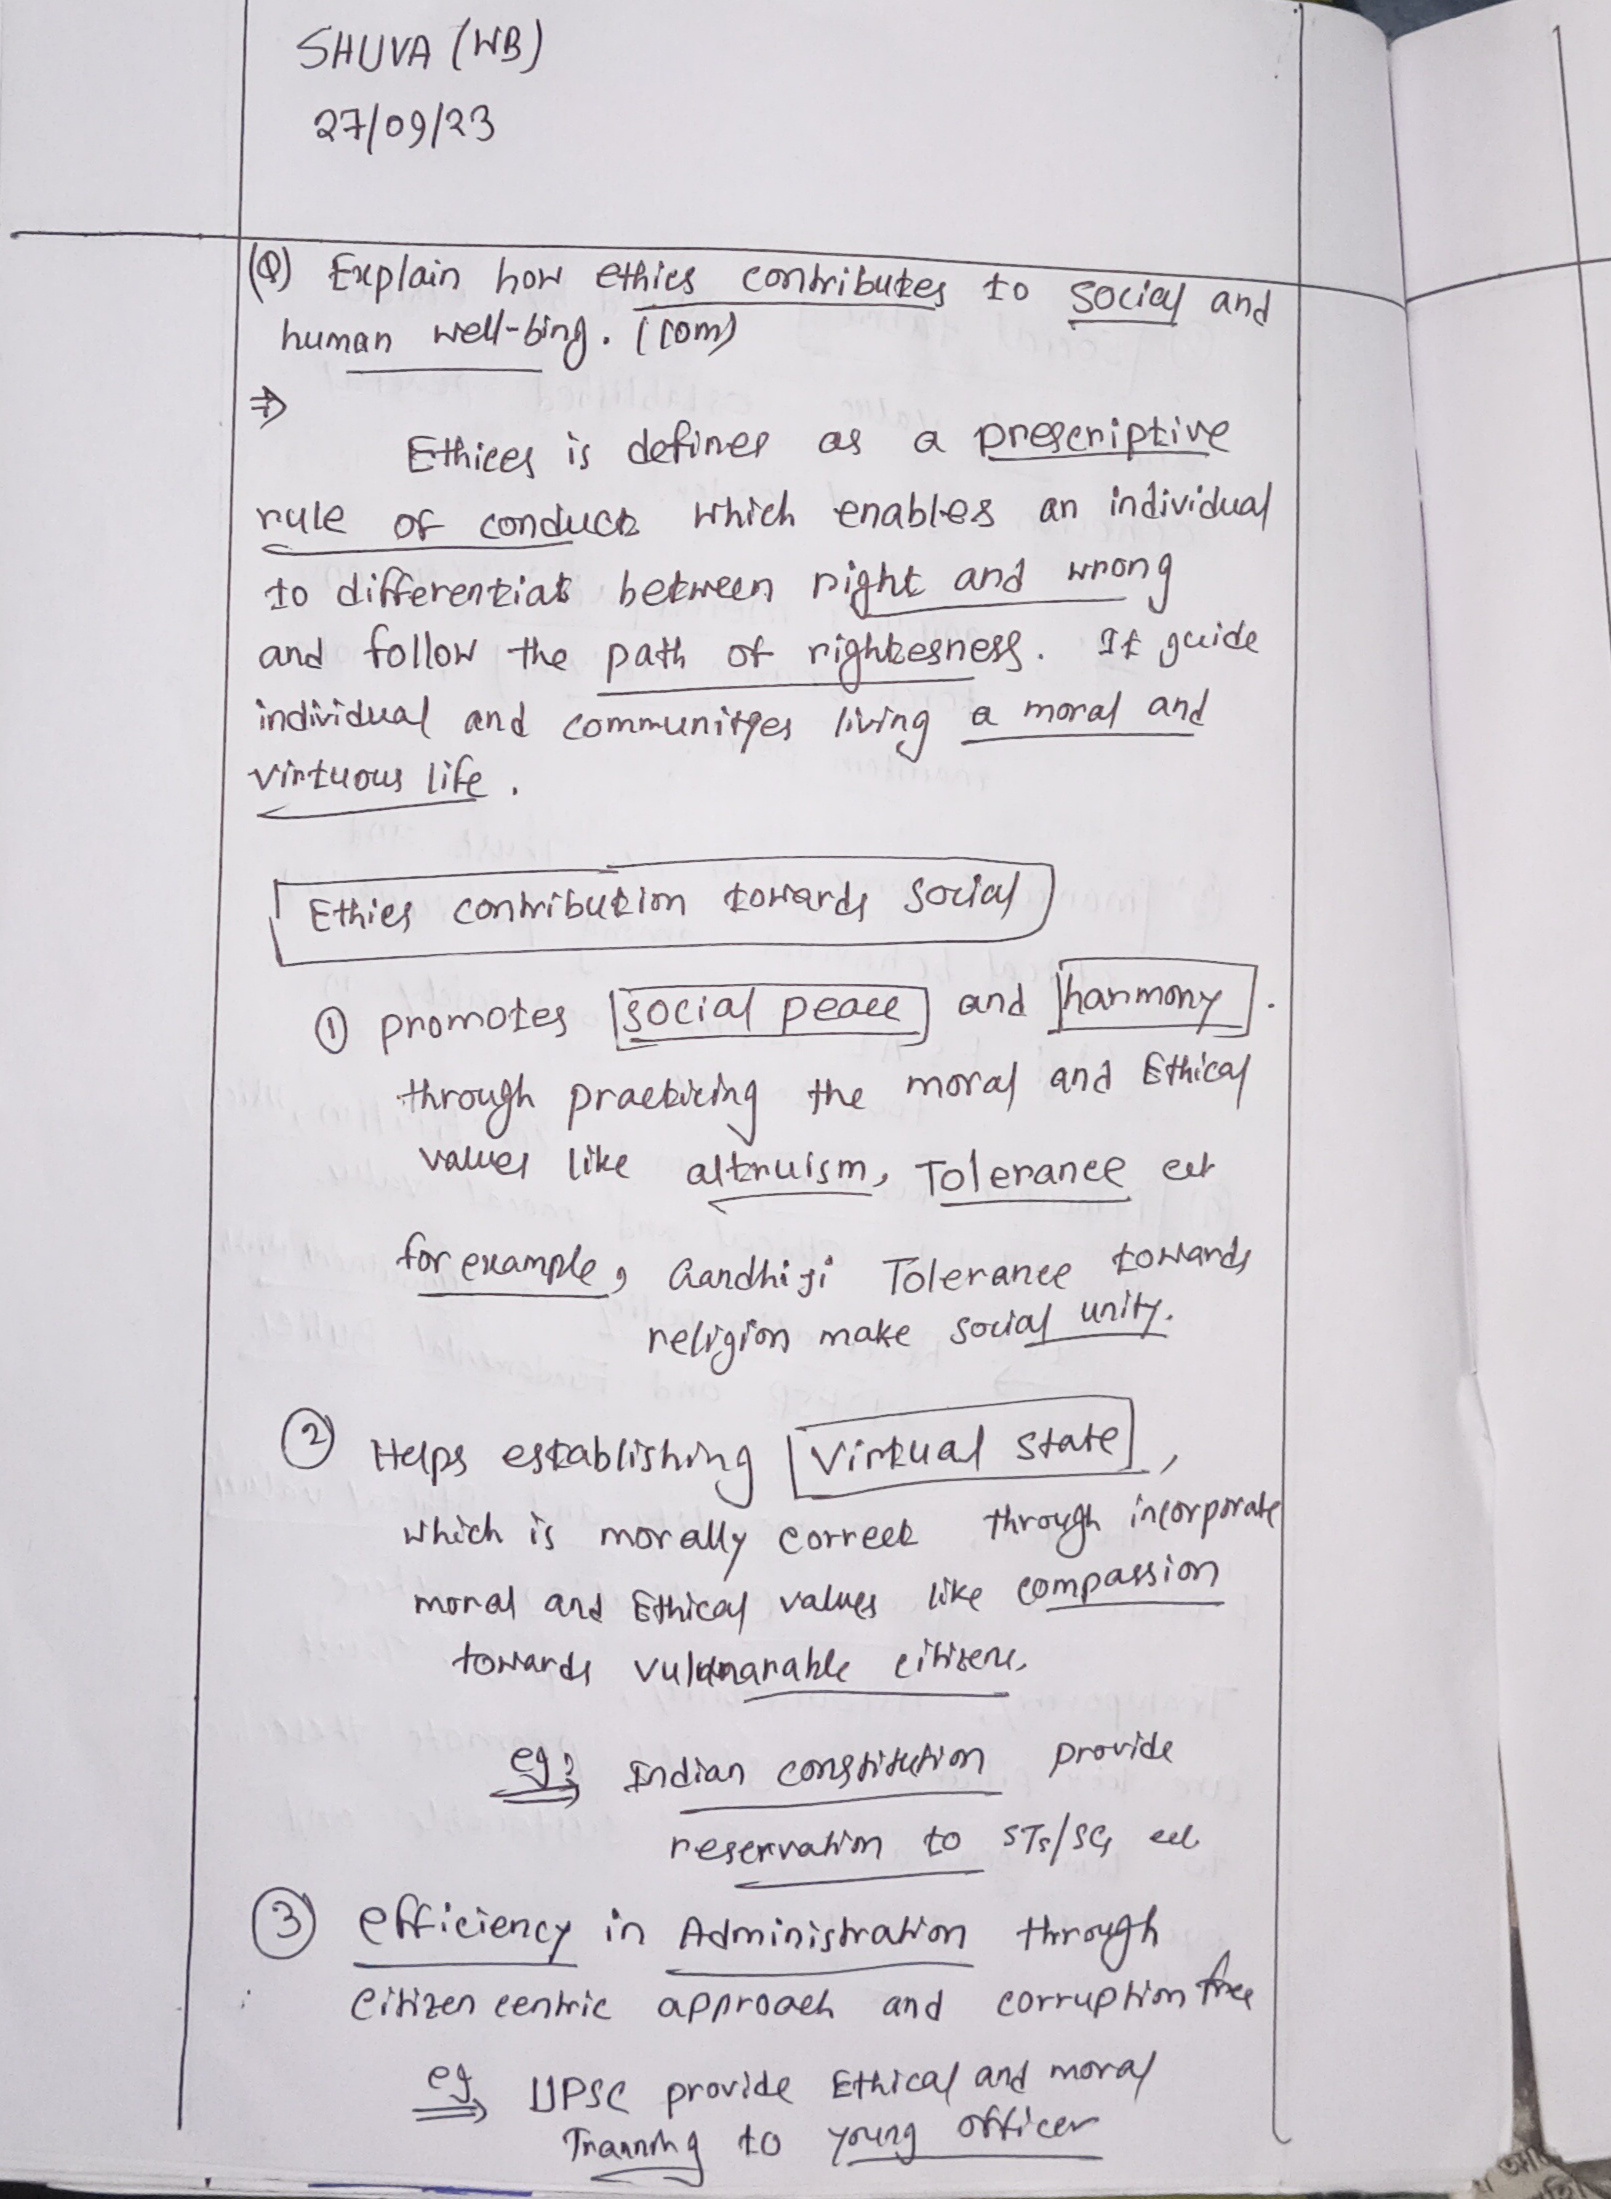 SHUVA (WB)
27/09/23
(Q) Explain how ethics contributes to social and
human well-bing. (10m)
⇒
Ethices is defines as a prescriptive
rule of conduct which enables an individual
to differentiat between right and wrong
and follow the path of rightesness. It guide
individual and communityes living a moral and
virtuous life.
Ethics contribution towards social
① promotes social peace and harmony.
through practicing the moral and Ethical
values like altruism, Tolerance ect
for example, Gandhiji Tolerance towards
religion make social unity.
② Helps establishing Virtual state,
which is morally correct through incorporate
moral and Ethical values like compassion
towards citizens.
eg: Indian constitution provide
reservation to STs/SCs ect
③ efficiency in Administration through
citizen centric approach and corruption free
eg UPSC provide Ethical and moral
Tranning to young officer